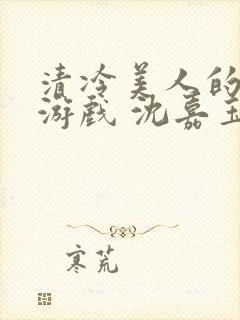 清冷美人的
游戏 沈嘉玉
寒荒